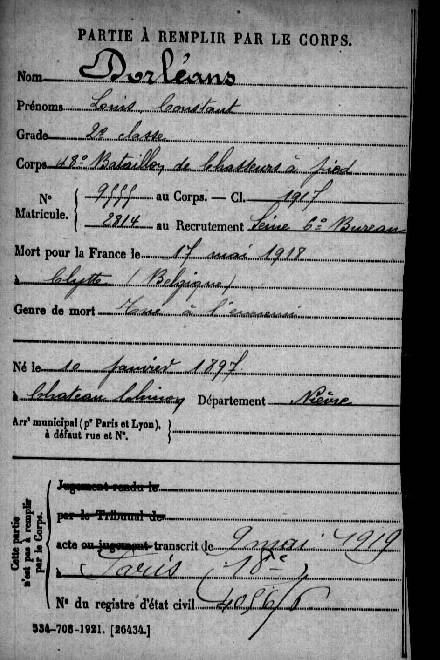 PARTIE À REMPLIR PAR LE CORPS.
Nom Dorléans
Prénoms Louis Constant
Grade 2e classe
Corps 48e Bataillon de Chasseurs à pied
N° Matricule. { 9555 au Corps. — Cl. 1917
2814 au Recrutement Seine 6e Bureau
Mort pour la France le 17 mai 1918
à Clytte (Belgique)
Genre de mort Tué à l'ennemi
Né le 10 janvier 1897
à Chateau Chinon Département Nièvre
Arrt municipal (pr Paris et Lyon), à défaut rue et N°. }
Cette partie n'est pas à remplir par le Corps.
Jugement rendu le
par le Tribunal de
acte ou jugement transcrit le 9 mai 1919
à Paris (18e)
N° du registre d'état civil
534-708-1921. [26434.]